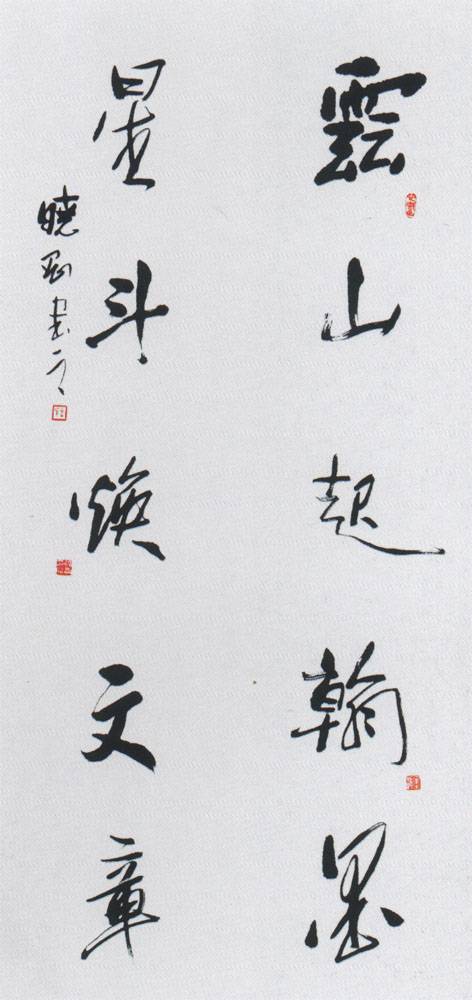 雲山起翰墨
星斗煥文章
曉剛書